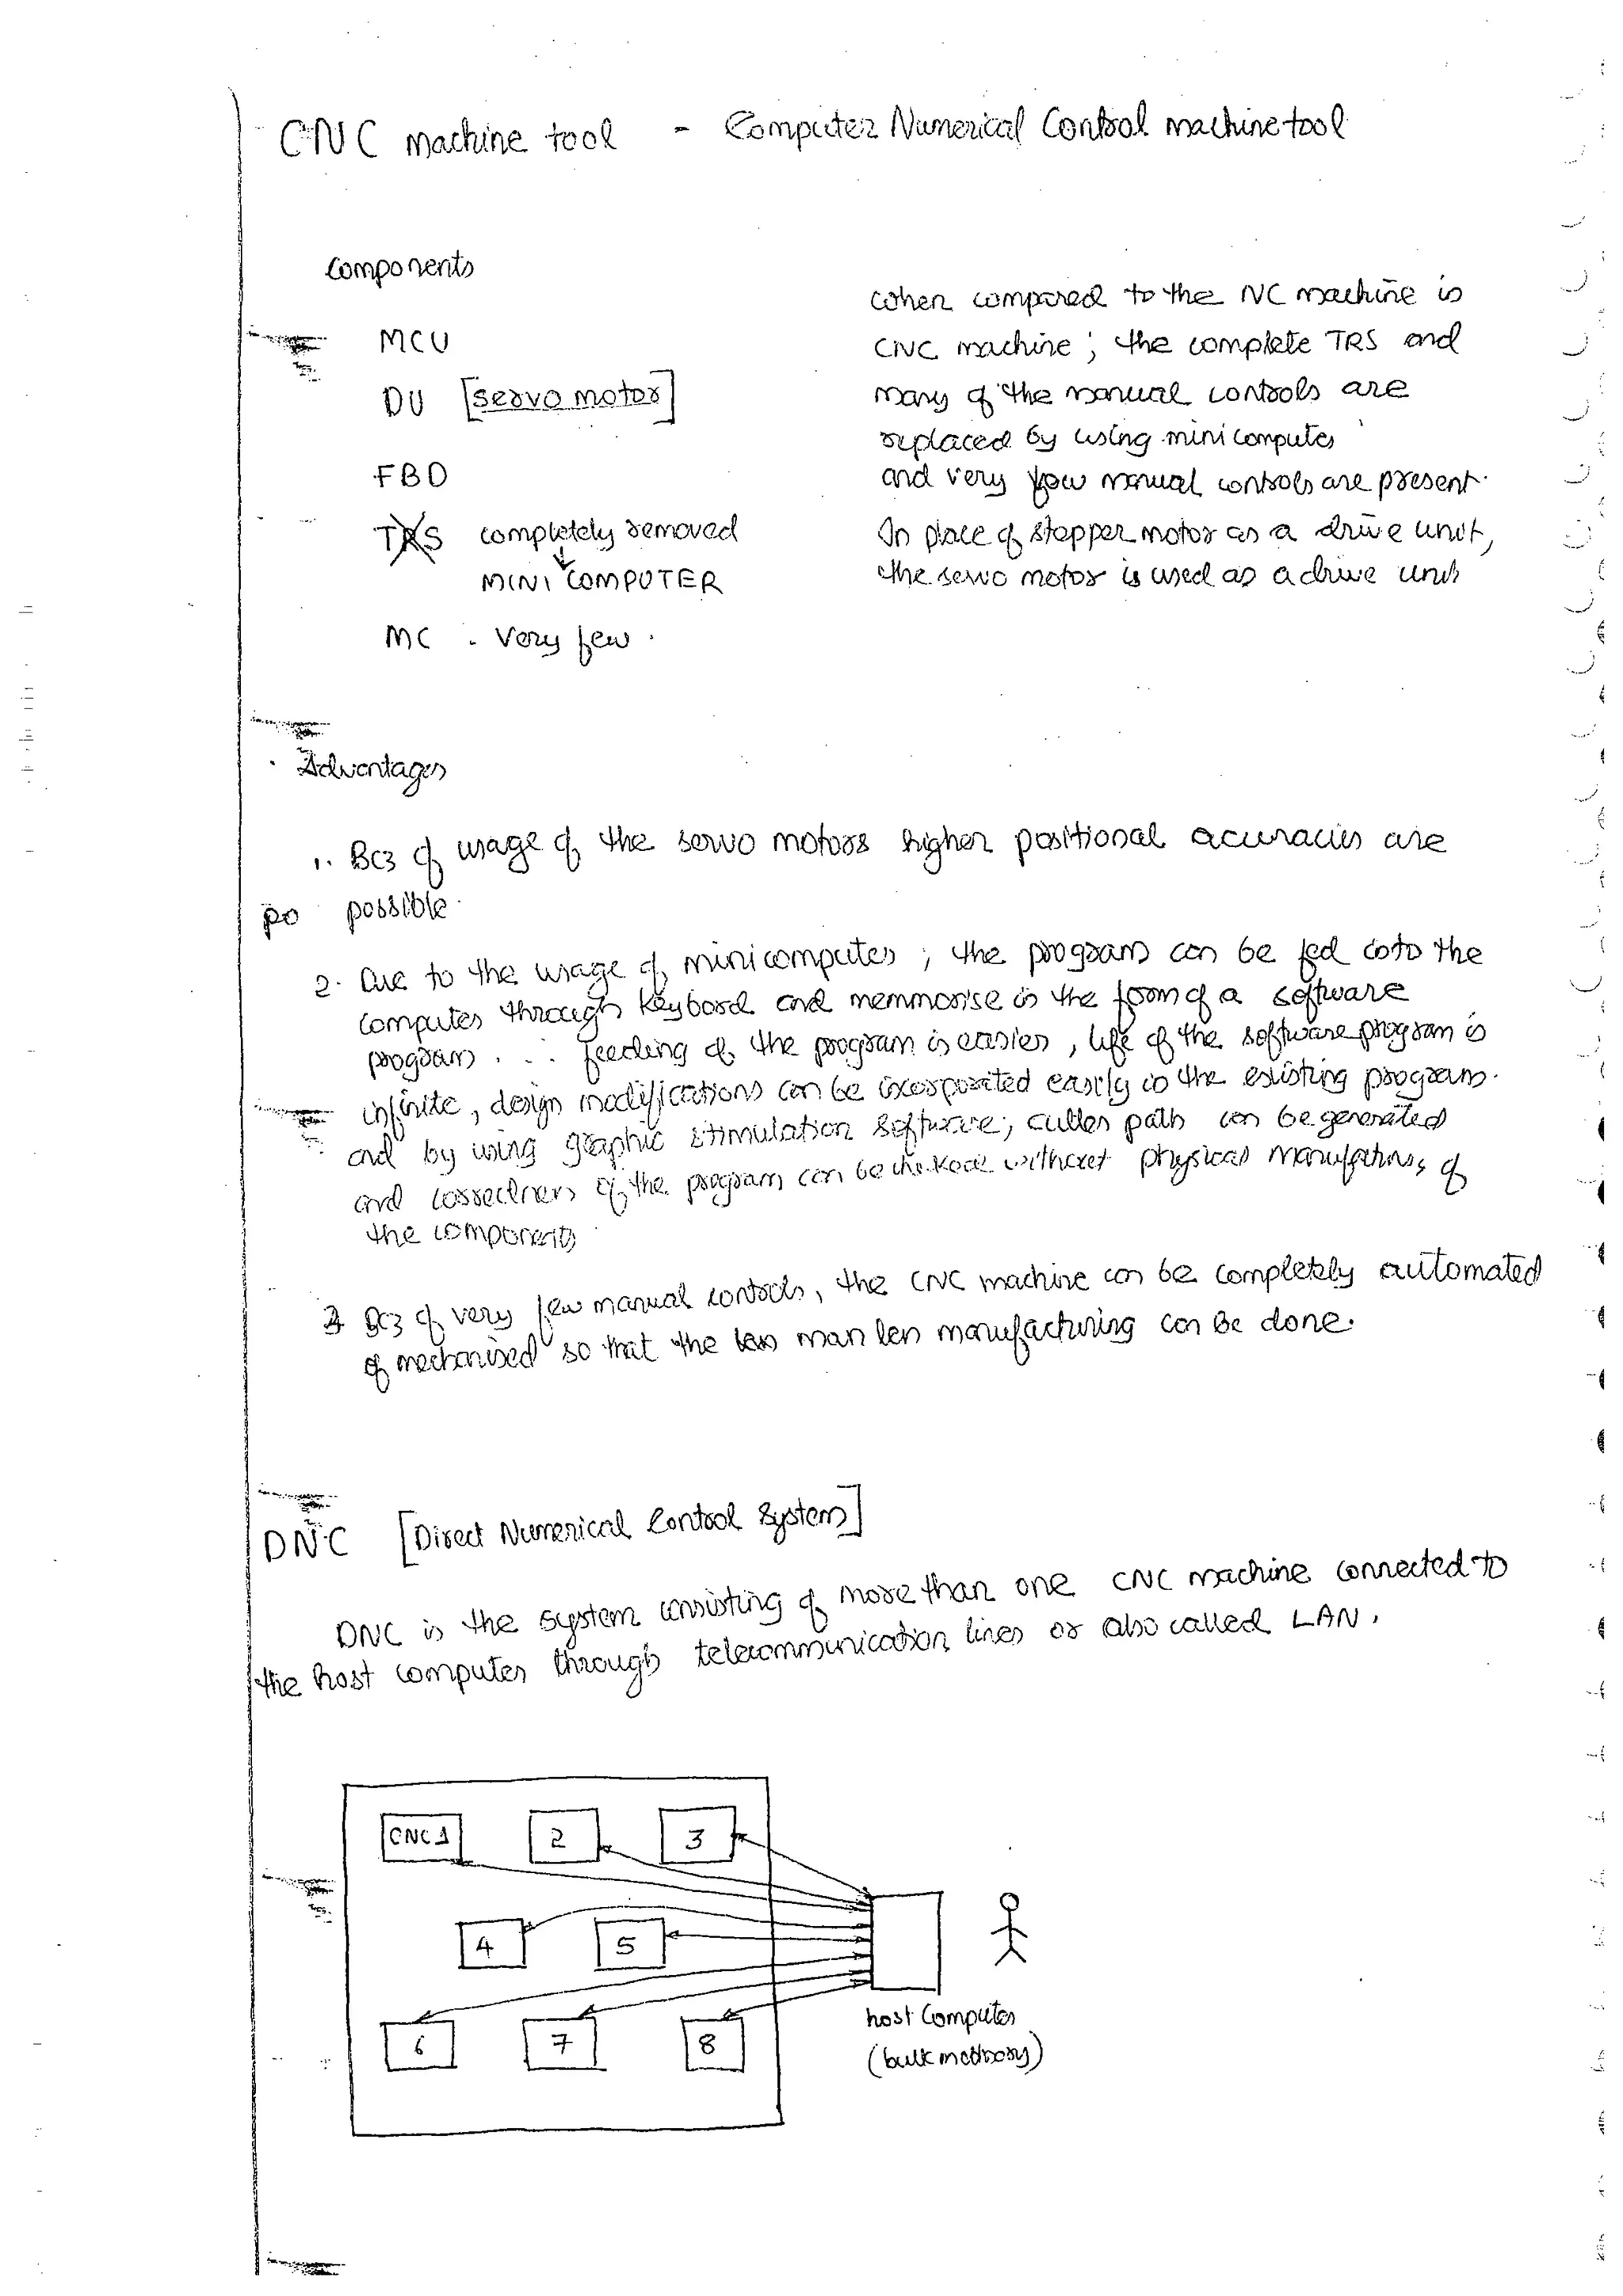 CNC machine tool - Computer Numerical Control machine tool
Components
MCU
DU [servo motor]
FBD
TRS completely removed
MINI COMPUTER
MC - Very few.
When compared to the NC machine is
CNC machine; the complete TRS and
many of the manual controls are
replaced by using mini computer
and very few manual controls are present.
In place of stepper motor as a drive unit,
the servo motor is used as a drive unit
Advantages
1. Bcz of usage of the servo motors higher positional accuracies are
po possible.
2. Due to the usage of minicomputer; the program can be fed into the
computer through keyboard and memmorise in the form of a software
program. ∴ feeding of the program is easier, life of the software program is
infinite, design modifications can be incorporated easily in the existing program.
and by using graphic stimulation software; cutter path can be generated
and correctness of the program can be checked without physical manufacturing of
the component
3. Bcz of very few manual controls, the CNC machine can be completely automated
of mechanised so that the less man less manufacturing can be done.
DNC [Direct Numerical Control System]
DNC is the system consisting of more than one CNC machine connected to
the host computer through telecommunication lines or also called LAN.
CNC 1 2 3
4 5
6 7 8
host computer
(bulk memory)